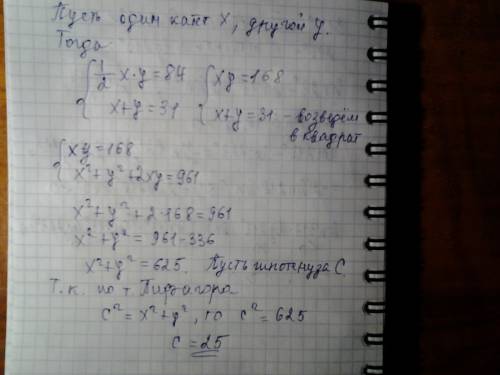 Пусть один кат x, другой y.
Тогда
{ 1/2 x·y=84 { xy=168
x+y=31 x+y=31 - возведём
в квадрат
{ xy=168
x²+y²+2xy=961
x²+y²+2·168=961
x²+y²=961-336
x²+y²=625. Пусть гипотенуза C.
Т.к. по т. Пифагора
c²=x²+y², то c²=625
c=25